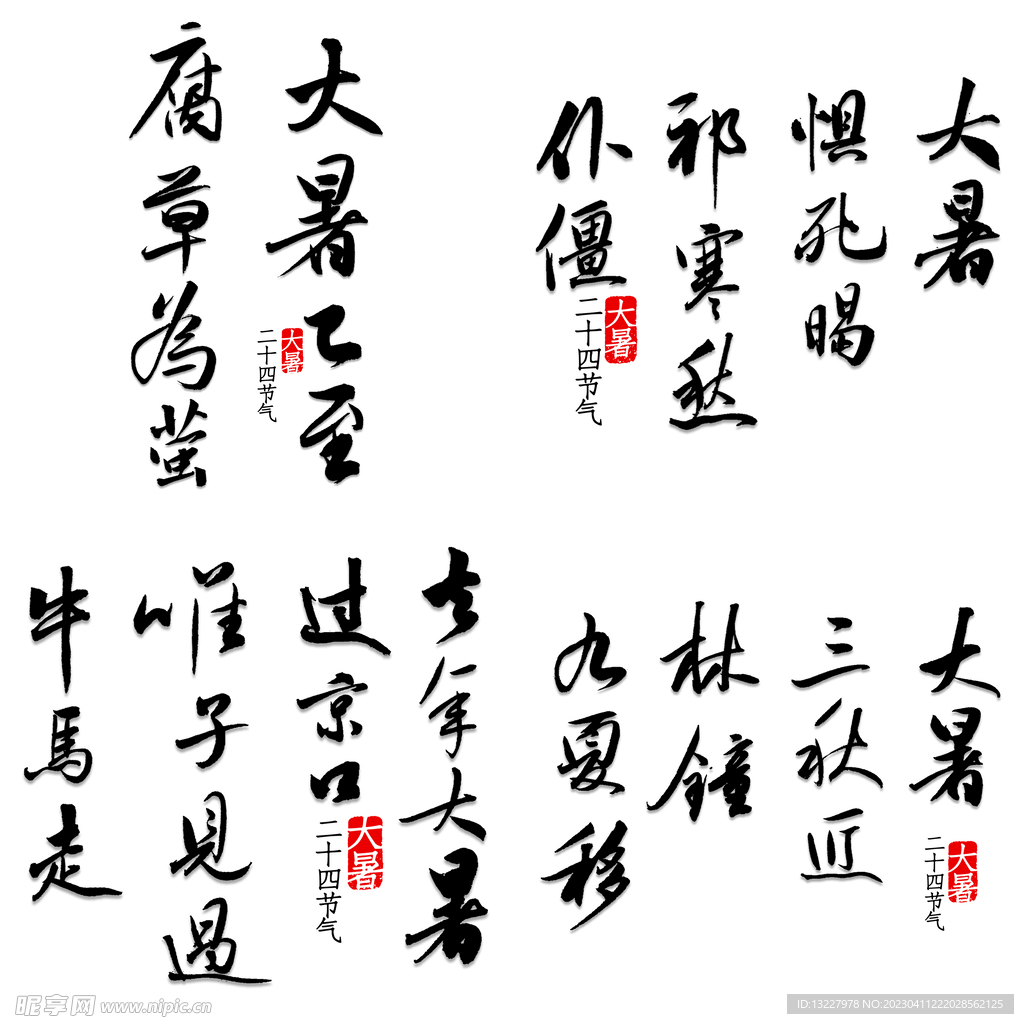 大暑已至
大暑
二十四节气
腐草為萤
大暑
惧死暍
邪寒愁
仆僵
大暑
二十四节气
去年大暑
过京口
大暑
二十四节气
唯子見過
牛馬走
大暑
三秋近
林鐘
九夏移
大暑
二十四节气
昵享网 www.nipic.cn
ID:13227978 NO:20230411222028562125